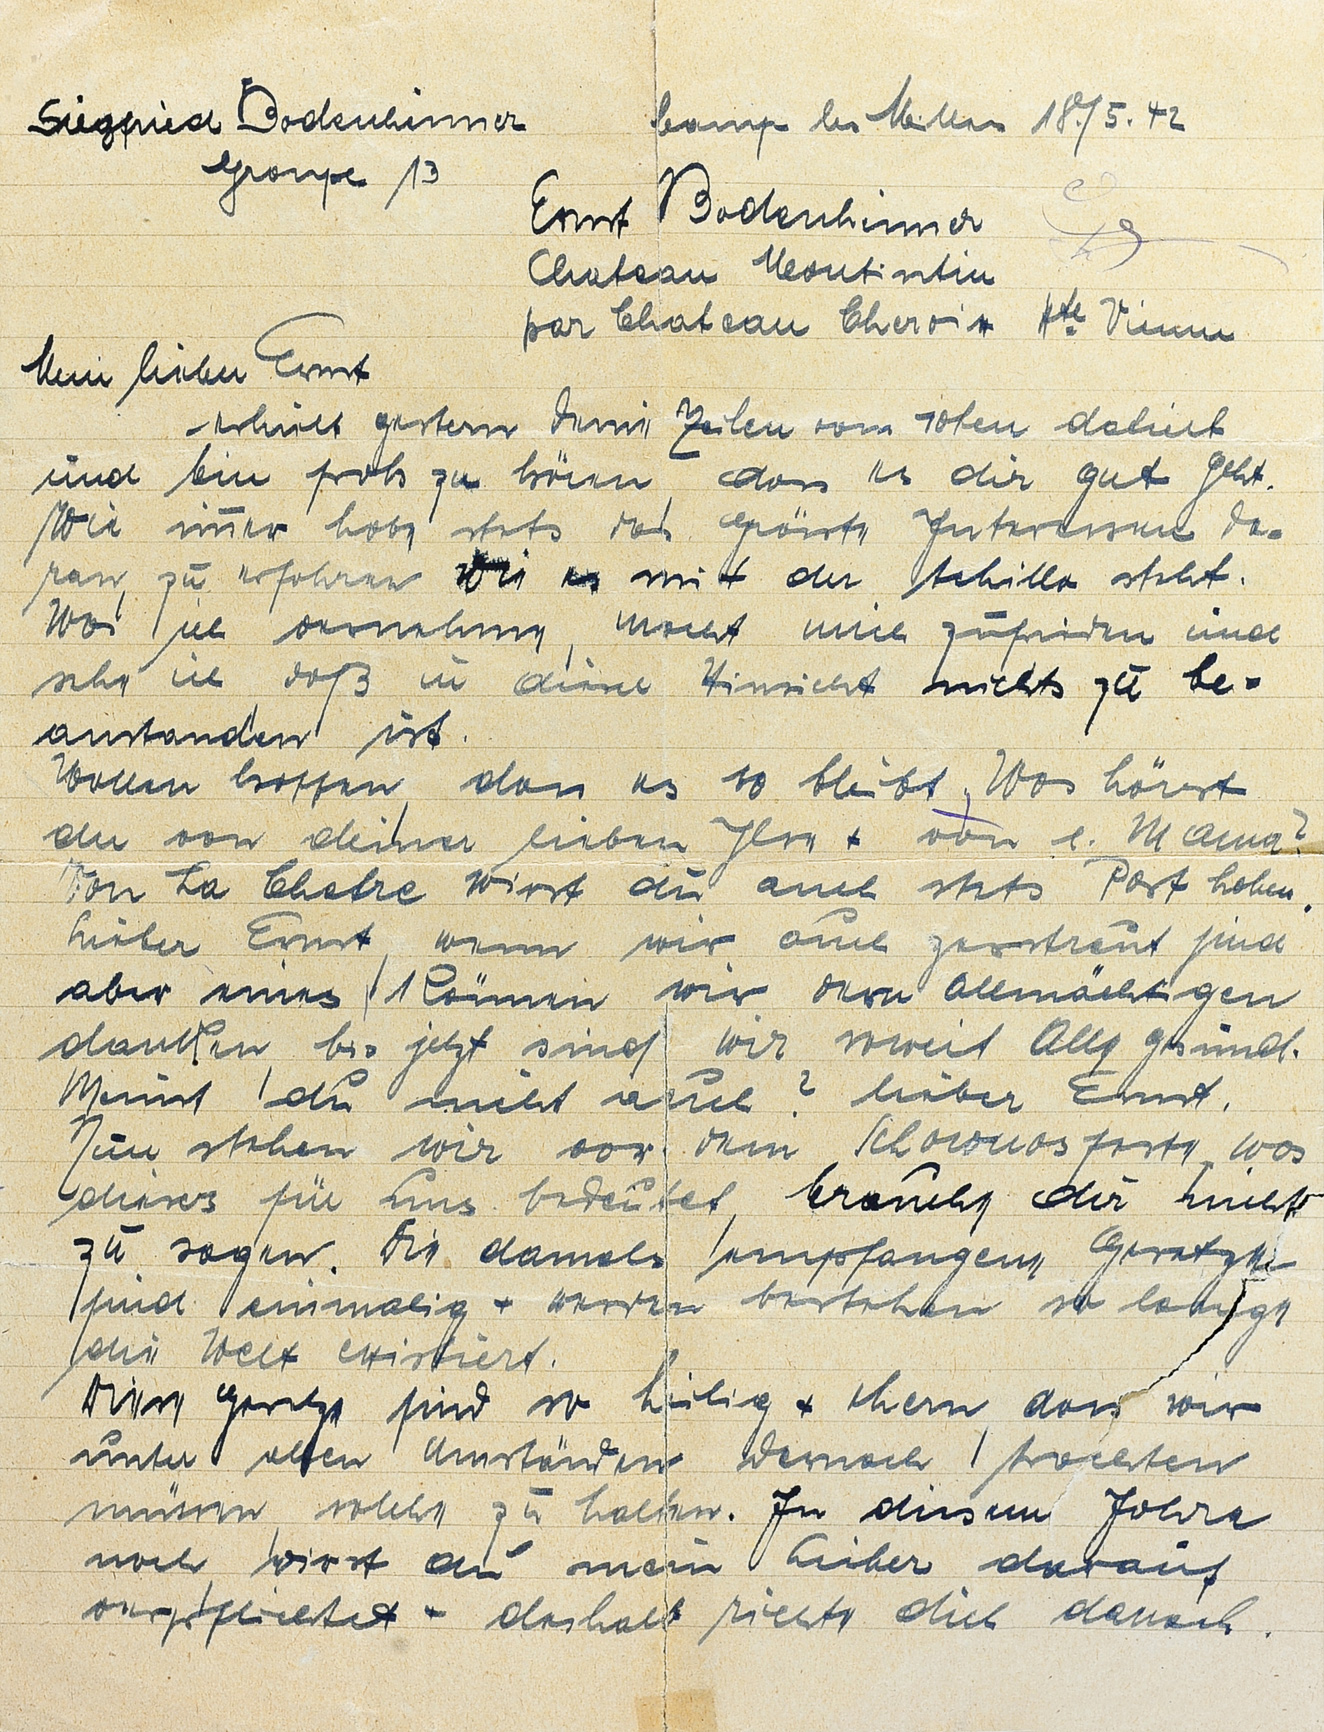 Siegfried Bodenheimer Camp les Milles 18/5.42
Groupe 13
Ernst Bodenheimer
Chateau Montintin
par Chateau Chervix Hte Vienne
Mein lieber Ernst
erhielt gestern deine Zeilen vom 10ten datiert
und bin froh zu hören, dass es dir gut geht.
Wie im̅er habe stets das grösste Interessen da-
ran, zu erfahren wie es mit der tehilla steht.
Was ich vernehme, macht mich zufrieden und
sehe ich daß in dieser Hinsicht nichts zu be-
anstanden ist.
Wollen hoffen, dass es so bleibt. Was hörst
du von deiner lieben Ilse + von l. Mama?
Von La Chatre wirst du auch stets Post haben.
Lieber Ernst, wenn wir auch zerstreut sind
aber eines können wir dem Allmächtigen
danken, bis jetzt sind wir soweit Alle gesund.
Meinst du nicht auch? lieber Ernst.
Nun stehen wir vor dem Schowuosfeste, was
dieses für uns bedeutet, brauche dir nicht
zu sagen. Die damals empfangene Gesetze
sind einmalig + werden bestehen so lange
die Welt existiert.
Diese Gesetze sind so heilig + ehern, dass wir
unter allen Umständen darnach trachten
müssen, solche zu halten. In diesem Jahre
noch wirst du mein Lieber darauf
verpflichtet + deshalb richte dich danach.